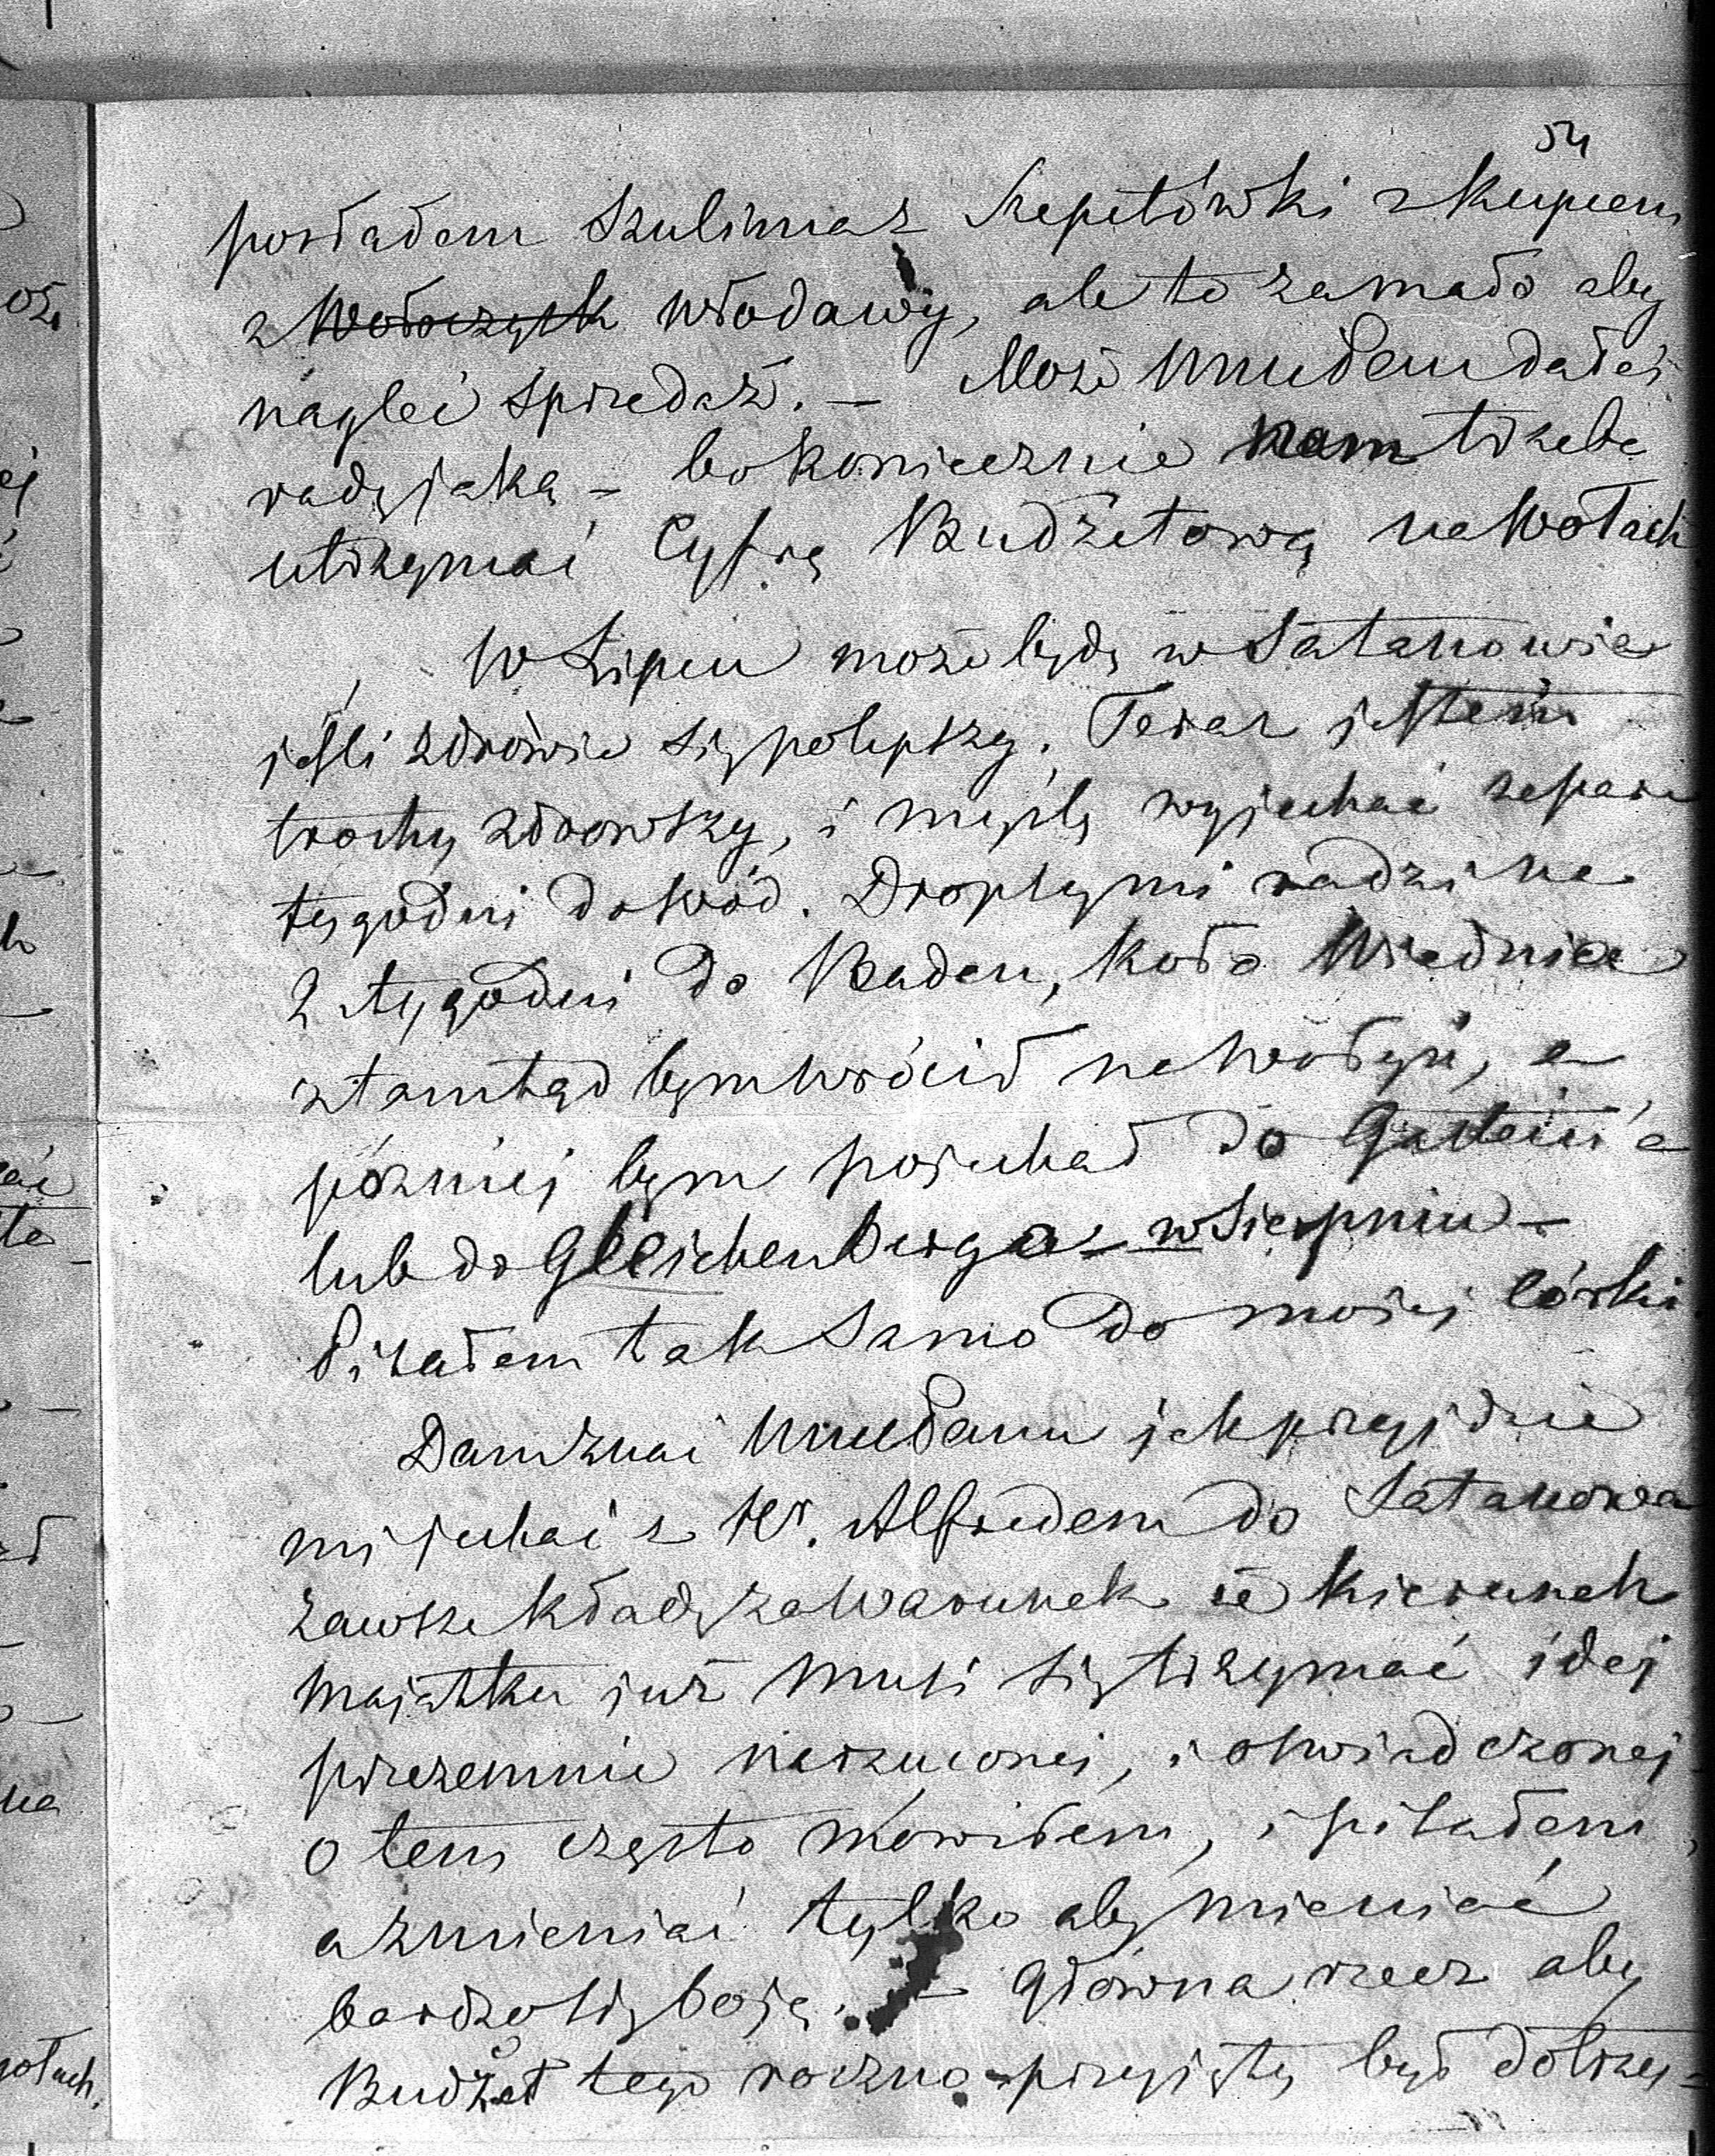 54
posłałem Szulima z Szepetówki z kupcem
z Wołoczysk Włodawy, ale to zamało aby
naglić sprzedaż. — Może WmuDem dałeś
radę jaką — bo koniecznie nam trzeba
utrzymać Cyfrę Budżetową na Wołach
W Lipcu może będę w Satanowie
jeśli zdrowie się polepszy. Teraz jestem
trochę zdrowszy, i myślę wyjechać za parę
tygodni do wód. Doktyrmi radzi na
2 tygodni do Baden, koło Wiednia
ztamtąd bym wrócił na Wołyń, a
później bym pojechał do Gastein'a
lub do Gleichenberga — w Sierpniu —
Pisałem tak samo do mojej córki.
Dam znać WmuDanu jak przyjdzie
mi jechać z Hr. Alfredem do Satanowa
zawsze kładę za warunek że kierunek
majątku już musi się trzymać idei
przezemnie narzuconej, i oświadczonej
o tem często mówiłem, i pisałem,
a zmieniać tylko aby mieniać
bardzo się boję. — Główna rzecz aby
Budżet tego roczno przyjęty był dotrzy-